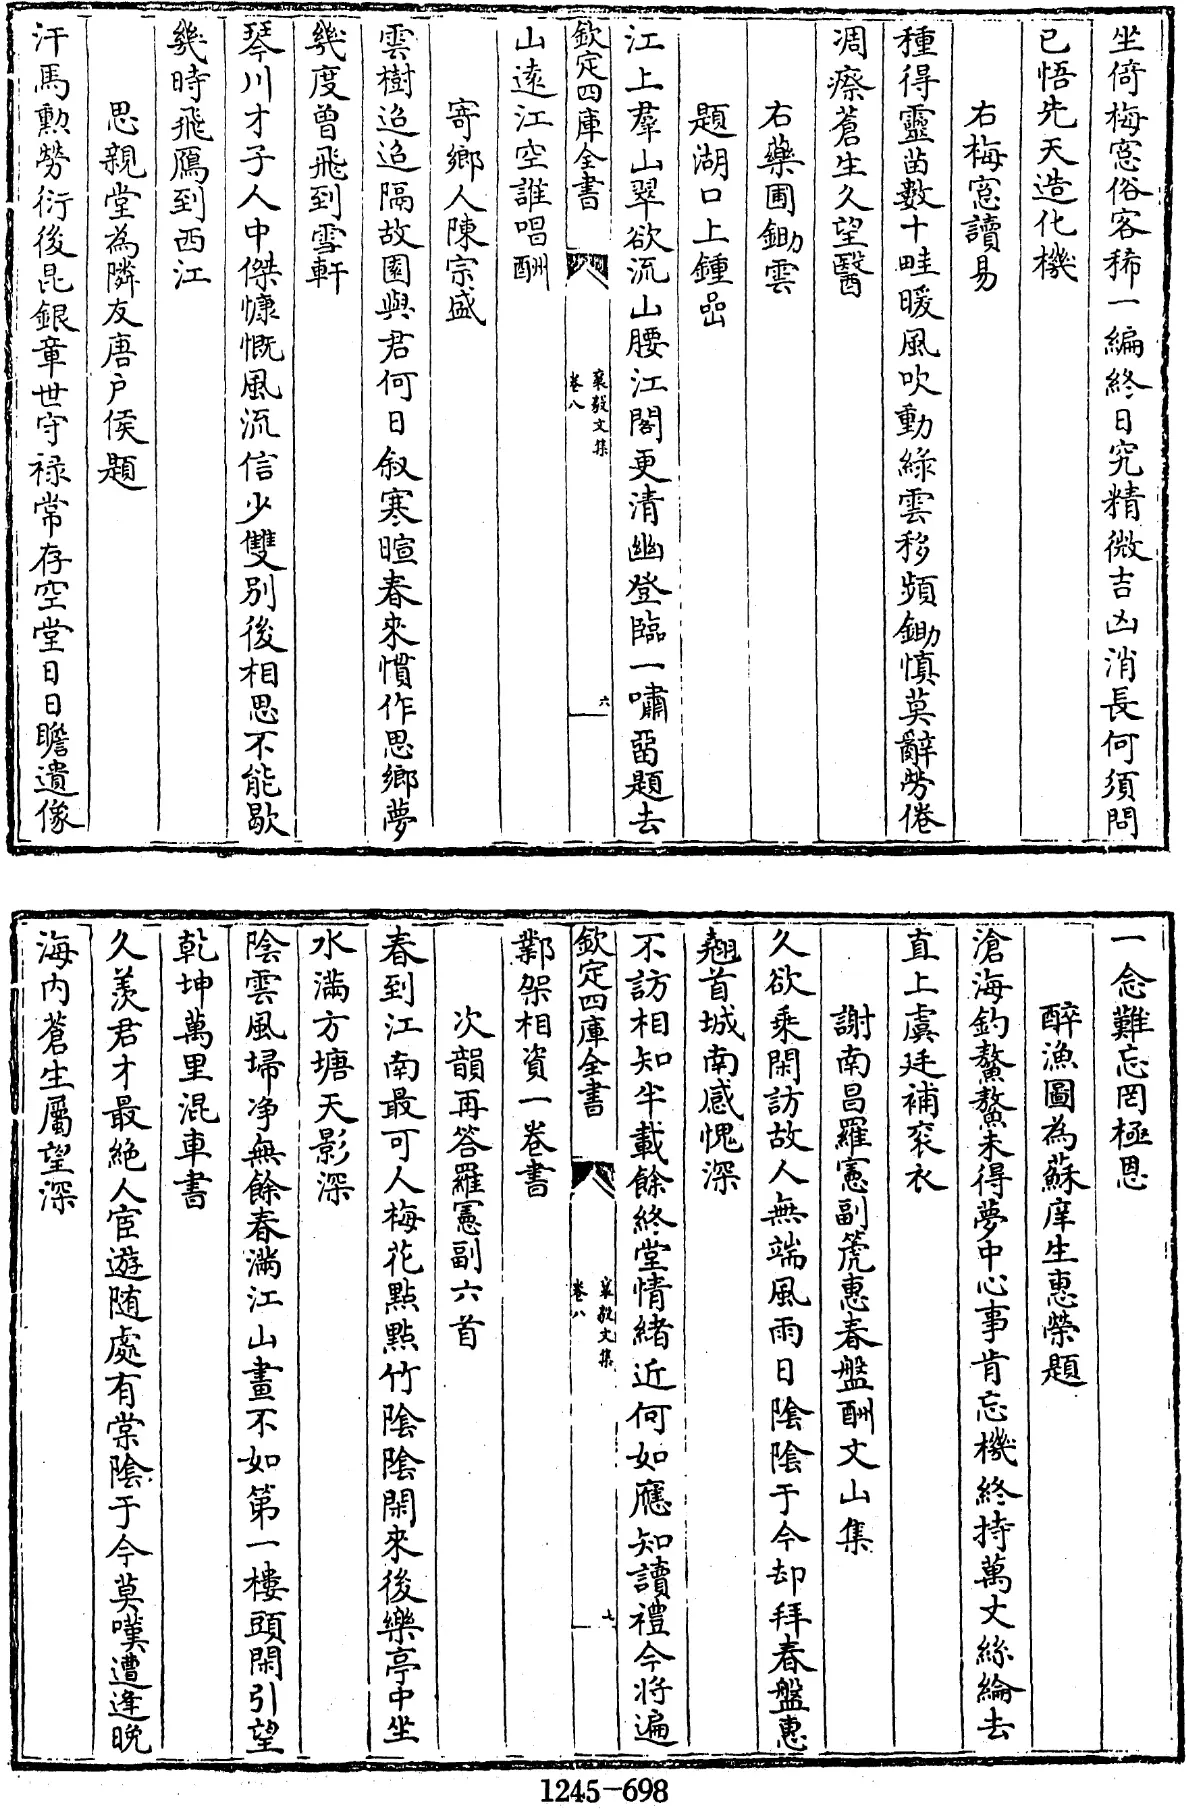 坐倚梅窓俗客稀一編終日究精微吉凶消長何須問
已悟先天造化機
右梅窓讀易
種得靈苗數十畦暖風吹動綠雲移頻鋤慎莫辭勞倦
凋瘵蒼生久望醫
右藥圃鋤雲
題湖口上鍾嵒
江上羣山翠欲流山腰江閣更清幽登臨一嘯畱題去
欽定四庫全書
襄毅文集
卷八
六
山遠江空誰唱酬
寄鄉人陳宗盛
雲樹迢迢隔故園與君何日叙寒暄春來慣作思鄉夢
幾度曾飛到雪軒
琴川才子人中傑慷慨風流信少雙別後相思不能歇
幾時飛鴈到西江
思親堂為隣友唐户侯題
汗馬勲勞衍後昆銀章世守祿常存空堂日日瞻遺像
一念難忘罔極恩
醉漁圖為蘇庠生惠榮題
滄海釣鰲鰲未得夢中心事肯忘機終持萬丈絲綸去
直上虞廷補衮衣
謝南昌羅憲副篪惠春盤酬文山集
久欲乘閑訪故人無端風雨日陰陰于今却拜春盤惠
翹首城南感愧深
不訪相知半載餘終堂情緒近何如應知讀禮今将遍
欽定四庫全書
襄毅文集
卷八
七
鄴架相資一卷書
次韻再答羅憲副六首
春到江南最可人梅花點點竹陰陰閑來後樂亭中坐
水滿方塘天影深
陰雲風埽净無餘春滿江山畫不如第一樓頭閑引望
乾坤萬里混車書
久羨君才最絶人宦遊随處有棠陰于今莫嘆遭逢晩
海内蒼生屬望深
1245-698